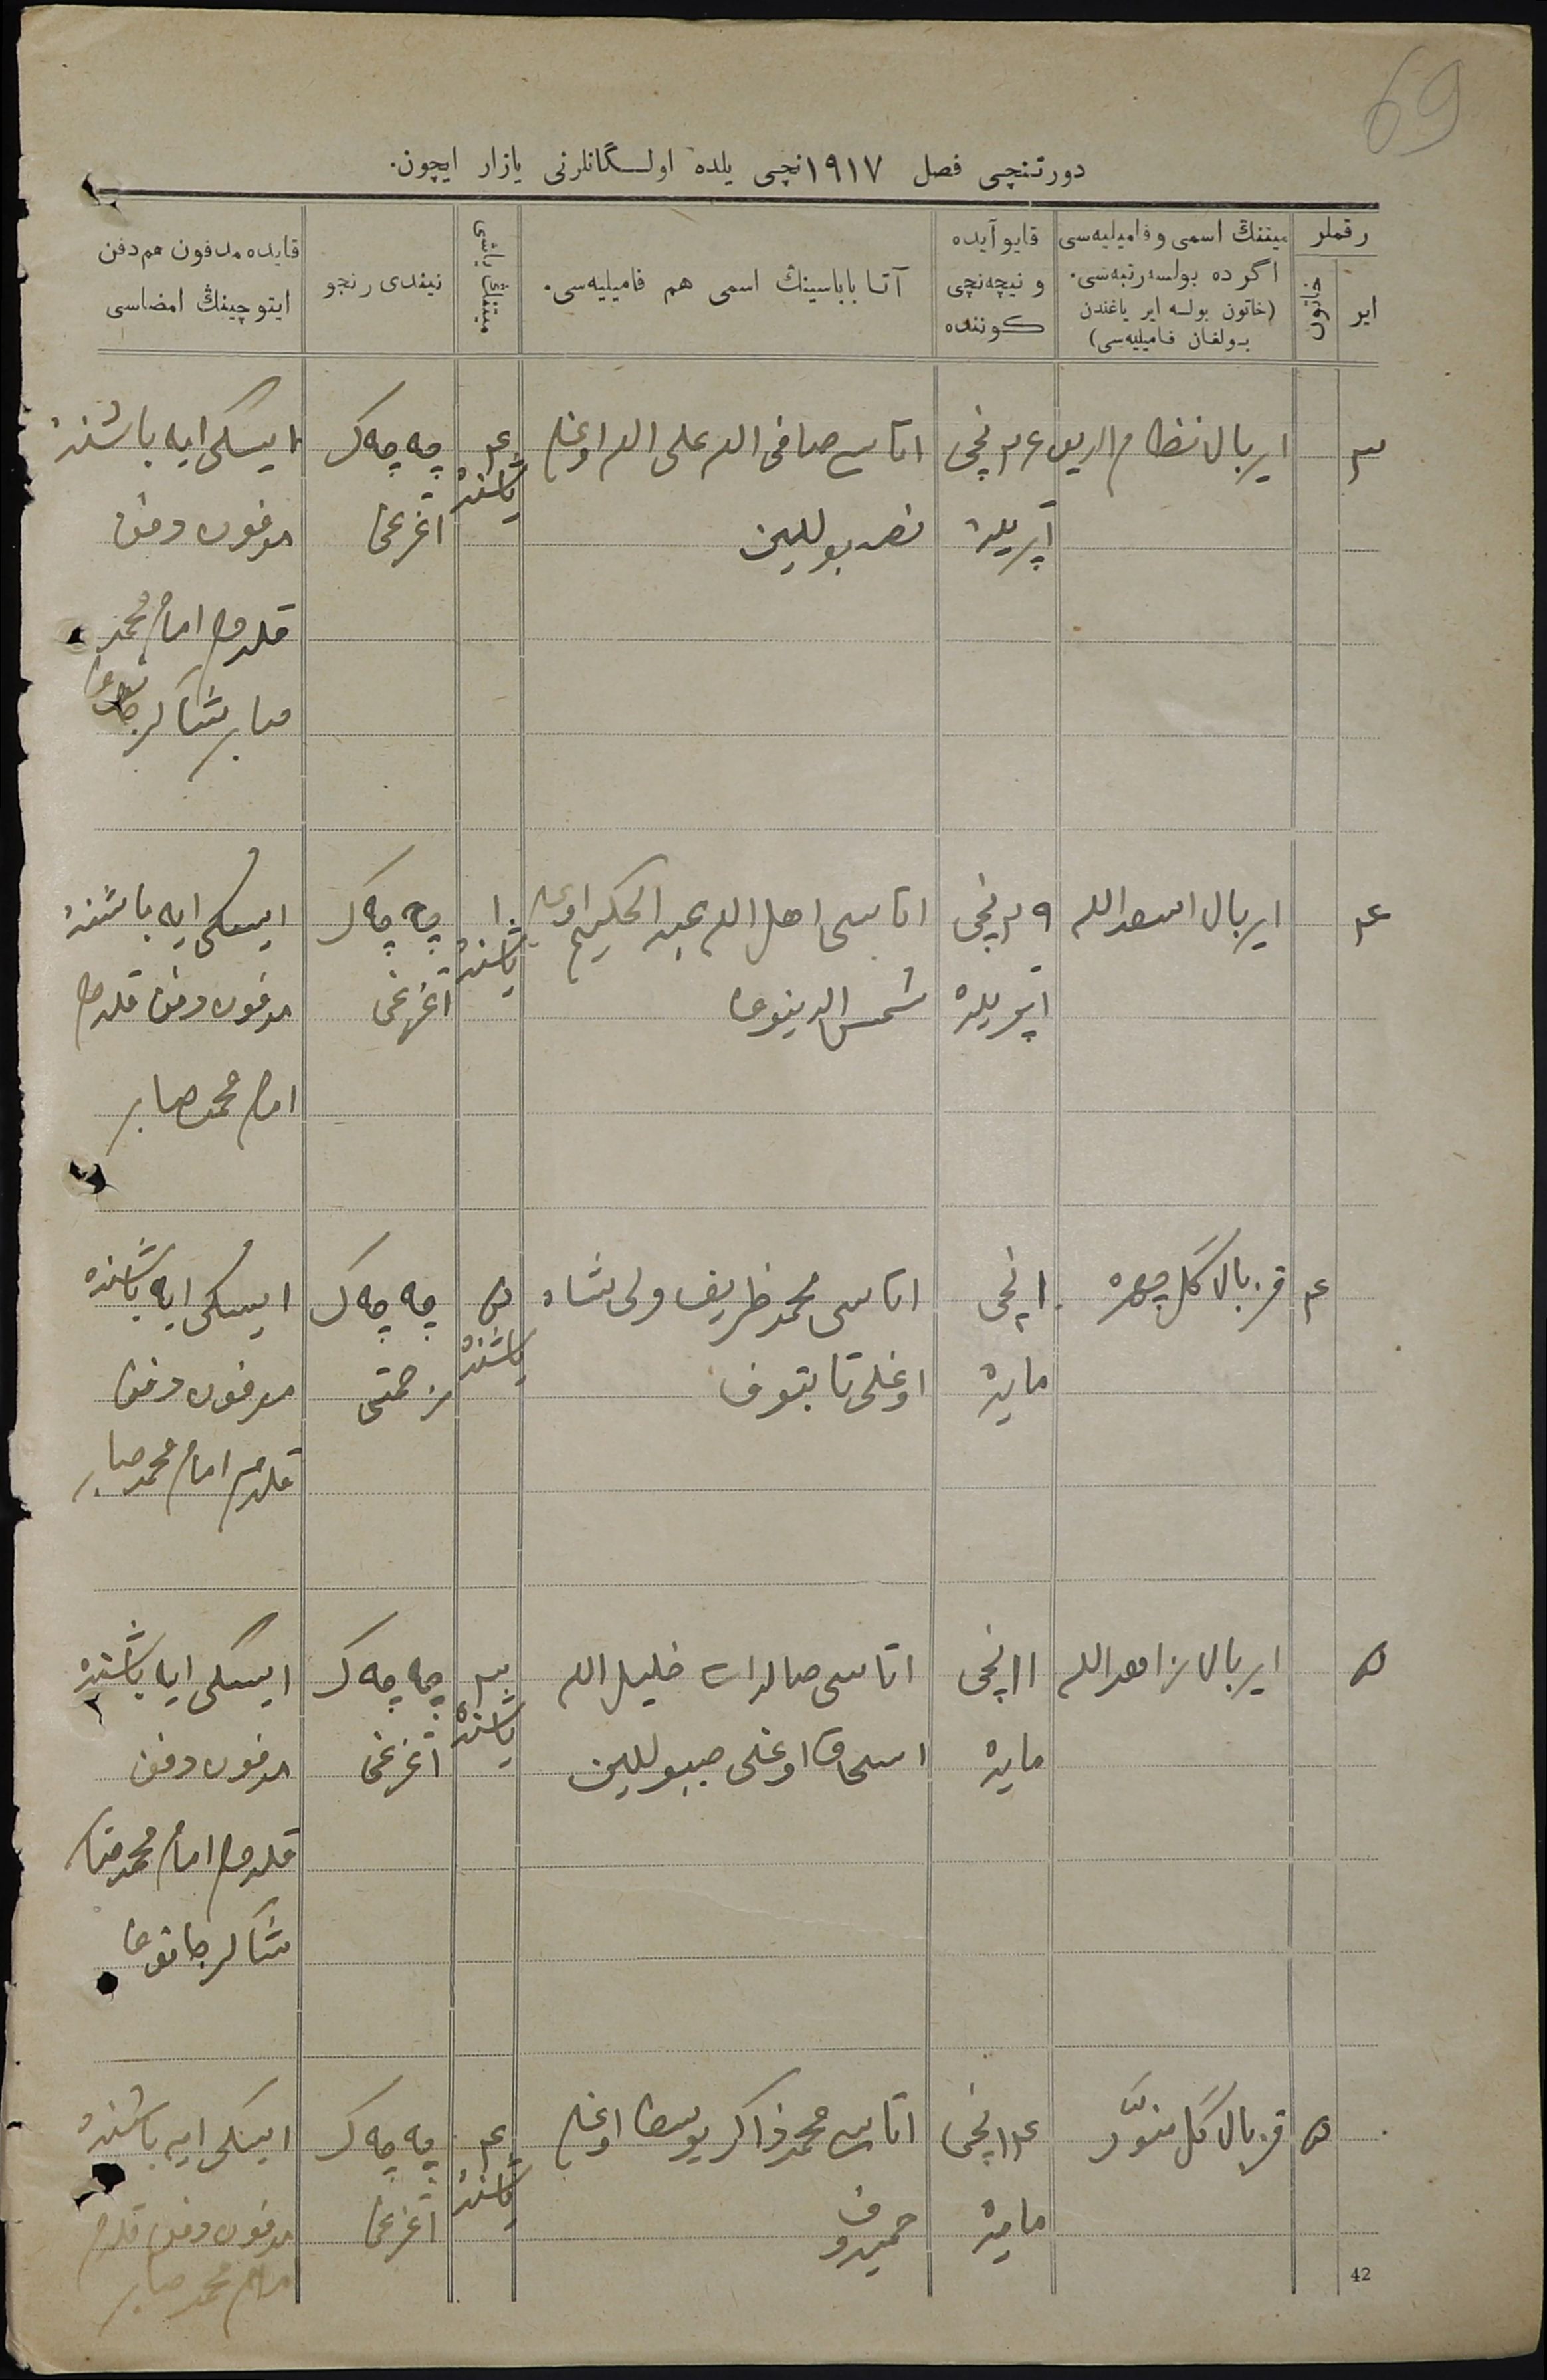 69
دورتنچی فصل ۱۹۱۷نچی یلده اولـگانلرنی یازار ایچون.
رقملر
ایر
خاتون
میتنڭ اسمی وفامیلیه‌سی
اگر ده بولسه رتبه‌سی.
(خاتون بولسه ایر یاغندن
بولغان فامیلیه‌سی)
قایو آیده
و نیچه‌نچی
کوننده
آتا باباسینڭ اسمی هم فامیلیه‌سی.
میتنڭ یاشی
نیندی رنجو
قایده مدفون هم دفن
ایتوچینڭ امضاسی
۳
ایر بالا نظام الدین
۲۶ نچی
آپریلده
اتاسی صافی الله علی الله اوغلی
۴
یاشنده
چه چه ک
آغرغی
ایسکی ایه باشنده
مدفون دفن
قلدم امام محمد
صابر شاکرجانوف
۴
ایر بالا اسعد الله
۲۹ نچی
اپریلده
اتاسی اهل الله عبد الحکیم اوغلی
شمس الدینوف
۱۰
یاشنده
چه چه ک
آغرغی
ایسکی ایه باشنده
مدفون دفن قلدم
امام محمد صابر
۴
قز بالا گل چهره
۱۰ نچی
مایده
اتاسی محمد ظریف ولی شاه
اوغلی ثابتوف
۵
یاشنده
چه چه ک
زحمتی
ایسکی ایه باشنده
مدفون دفن
قلدم امام محمد صابر
۵
ایر بالا زاهد الله
۱۱ نچی
مایده
اتاسی صالدات خلیل الله
اسحاق اوغلی
۳
یاشنده
چه چه ک
آغرغی
ایسکی ایا باشنده
مدفون دفن
قلدم امام محمد صابر
شاکرجانوف
۵
قز بالا گل منوّر
۱۴ نچی
مایده
اتاسی محمد ذاکر یوسف اوغلی
حمیدوف
۴
یاشنده
چه چه ک
آغرغی
ایسکی ایه باشنده
مدفون دفن قلدم
امام محمد صابر
42